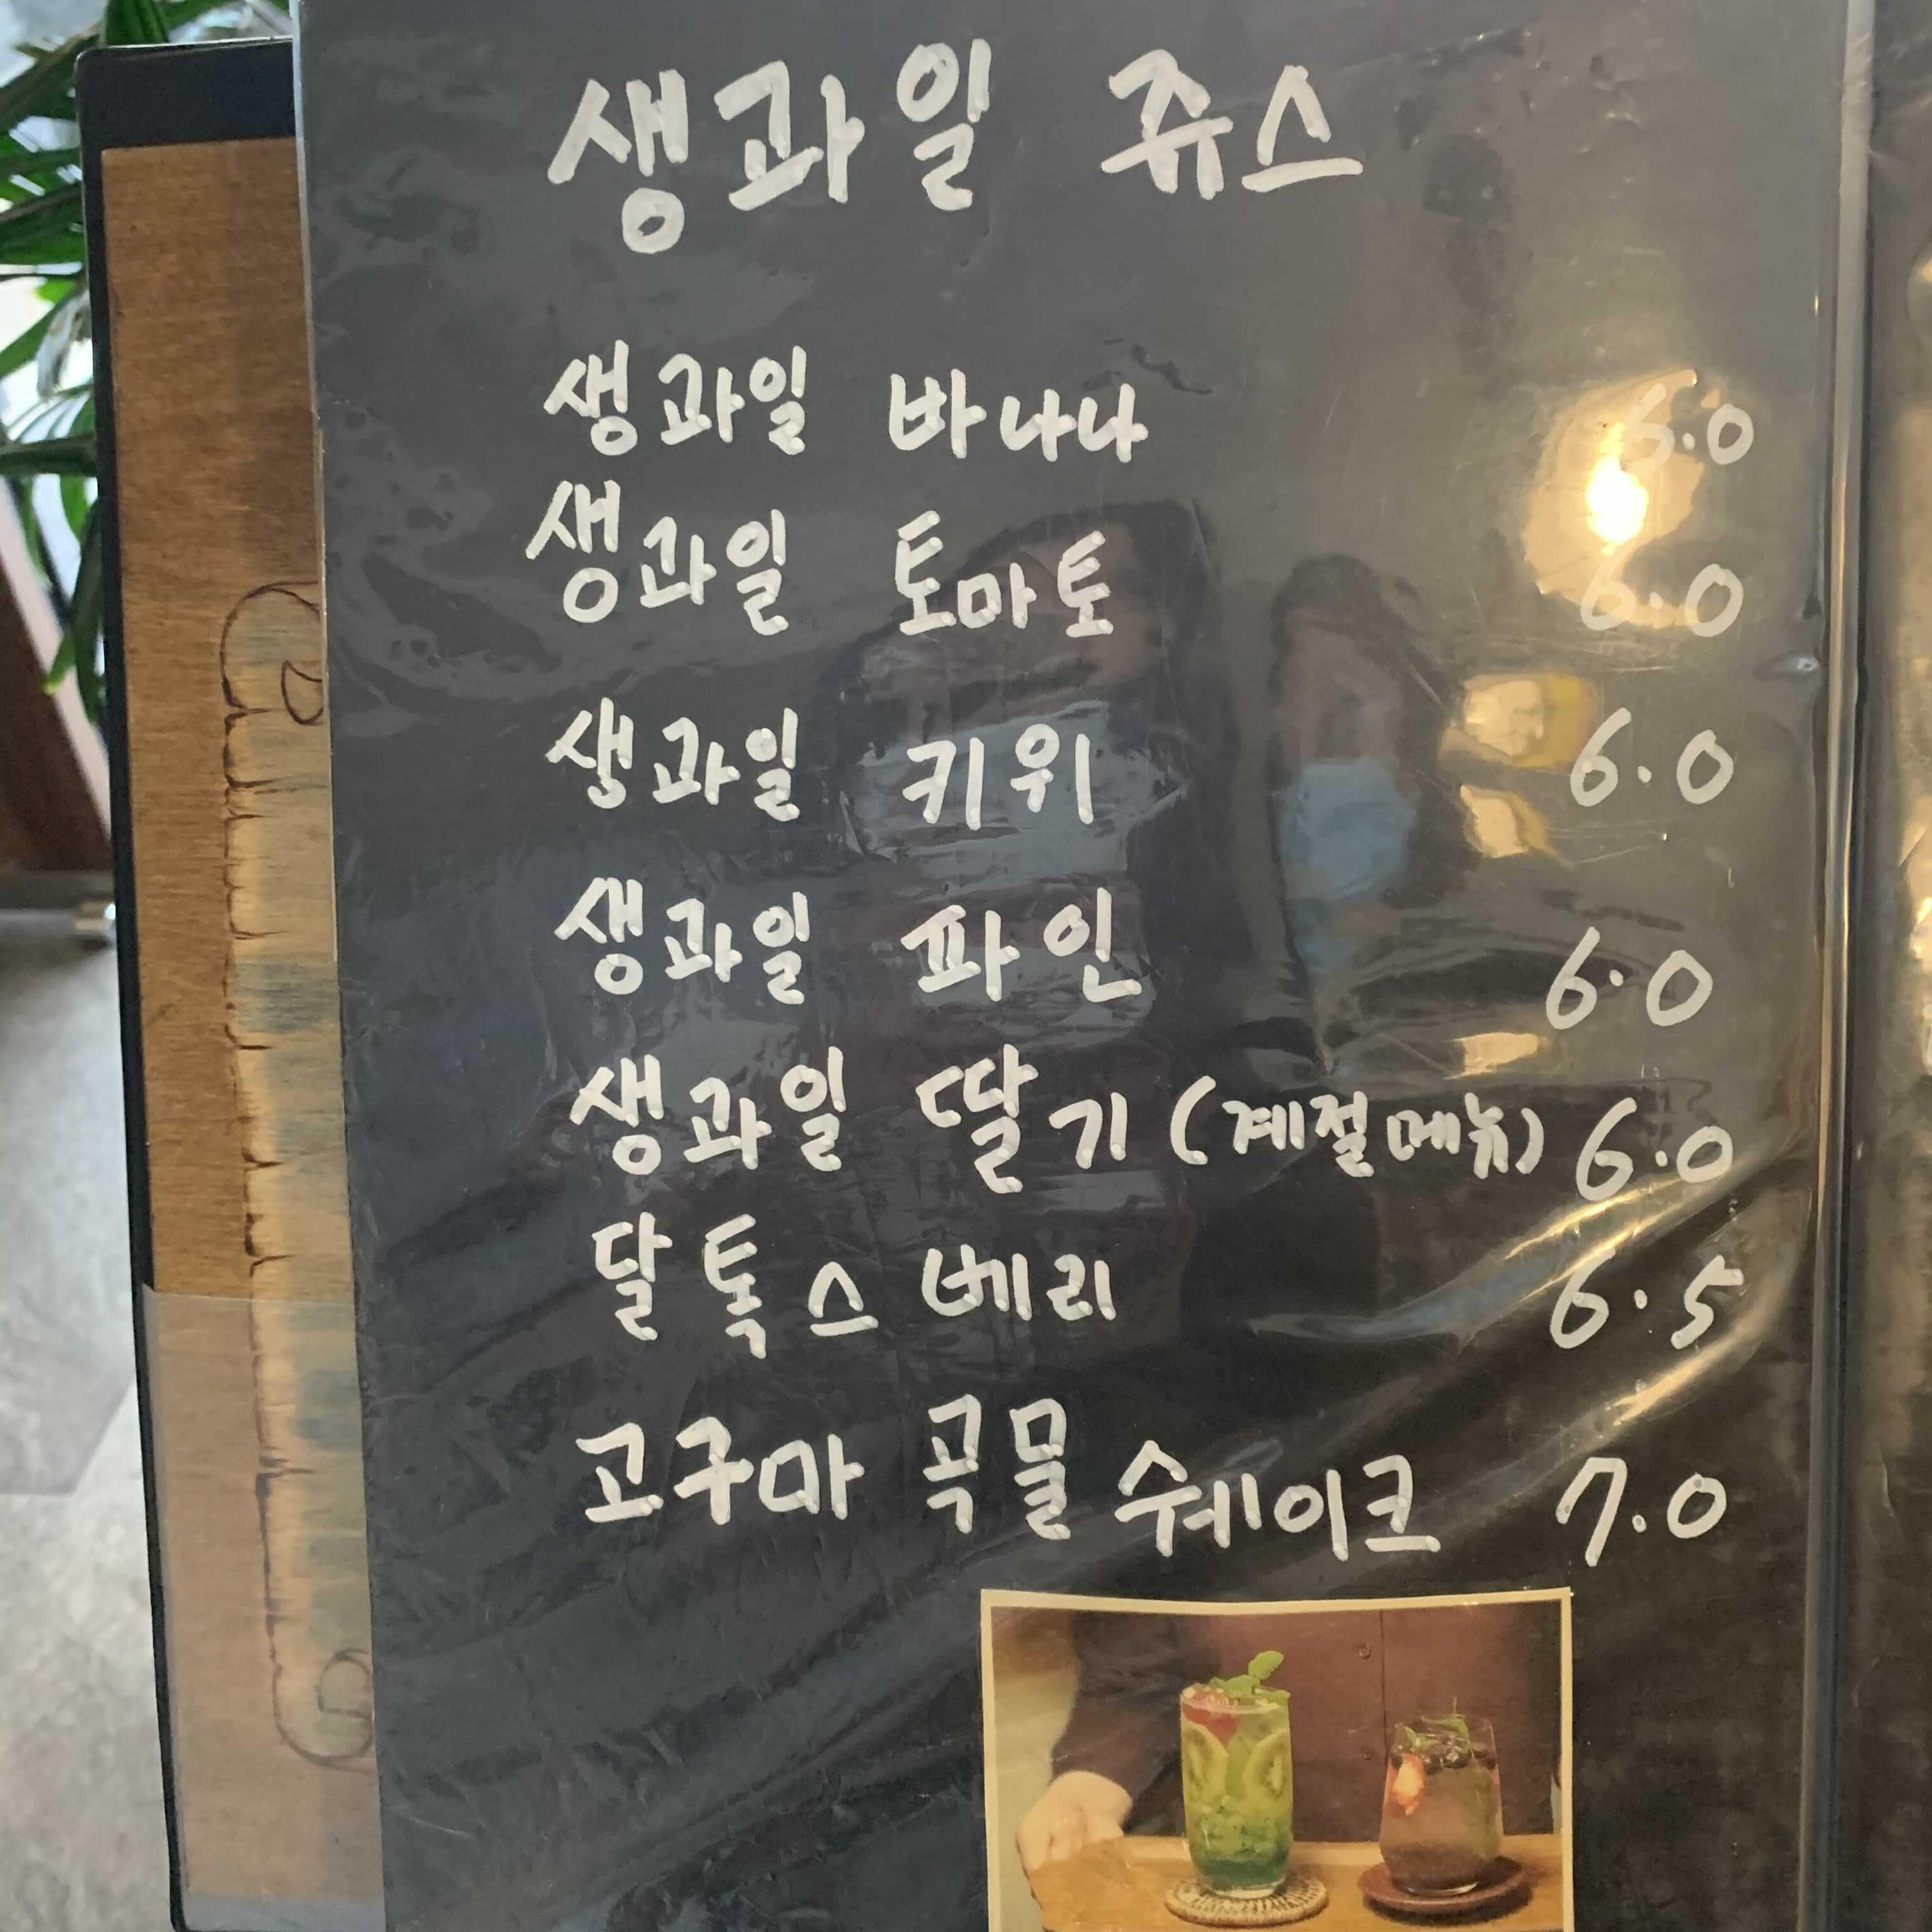 생과일 쥬스
생과일 바나나 6.0
생과일 토마토 6.0
생과일 키위 6.0
생과일 파인 6.0
생과일 딸기 (계절메뉴) 6.0
달톡스베리 6.5
고구마 곡물 쉐이크 7.0